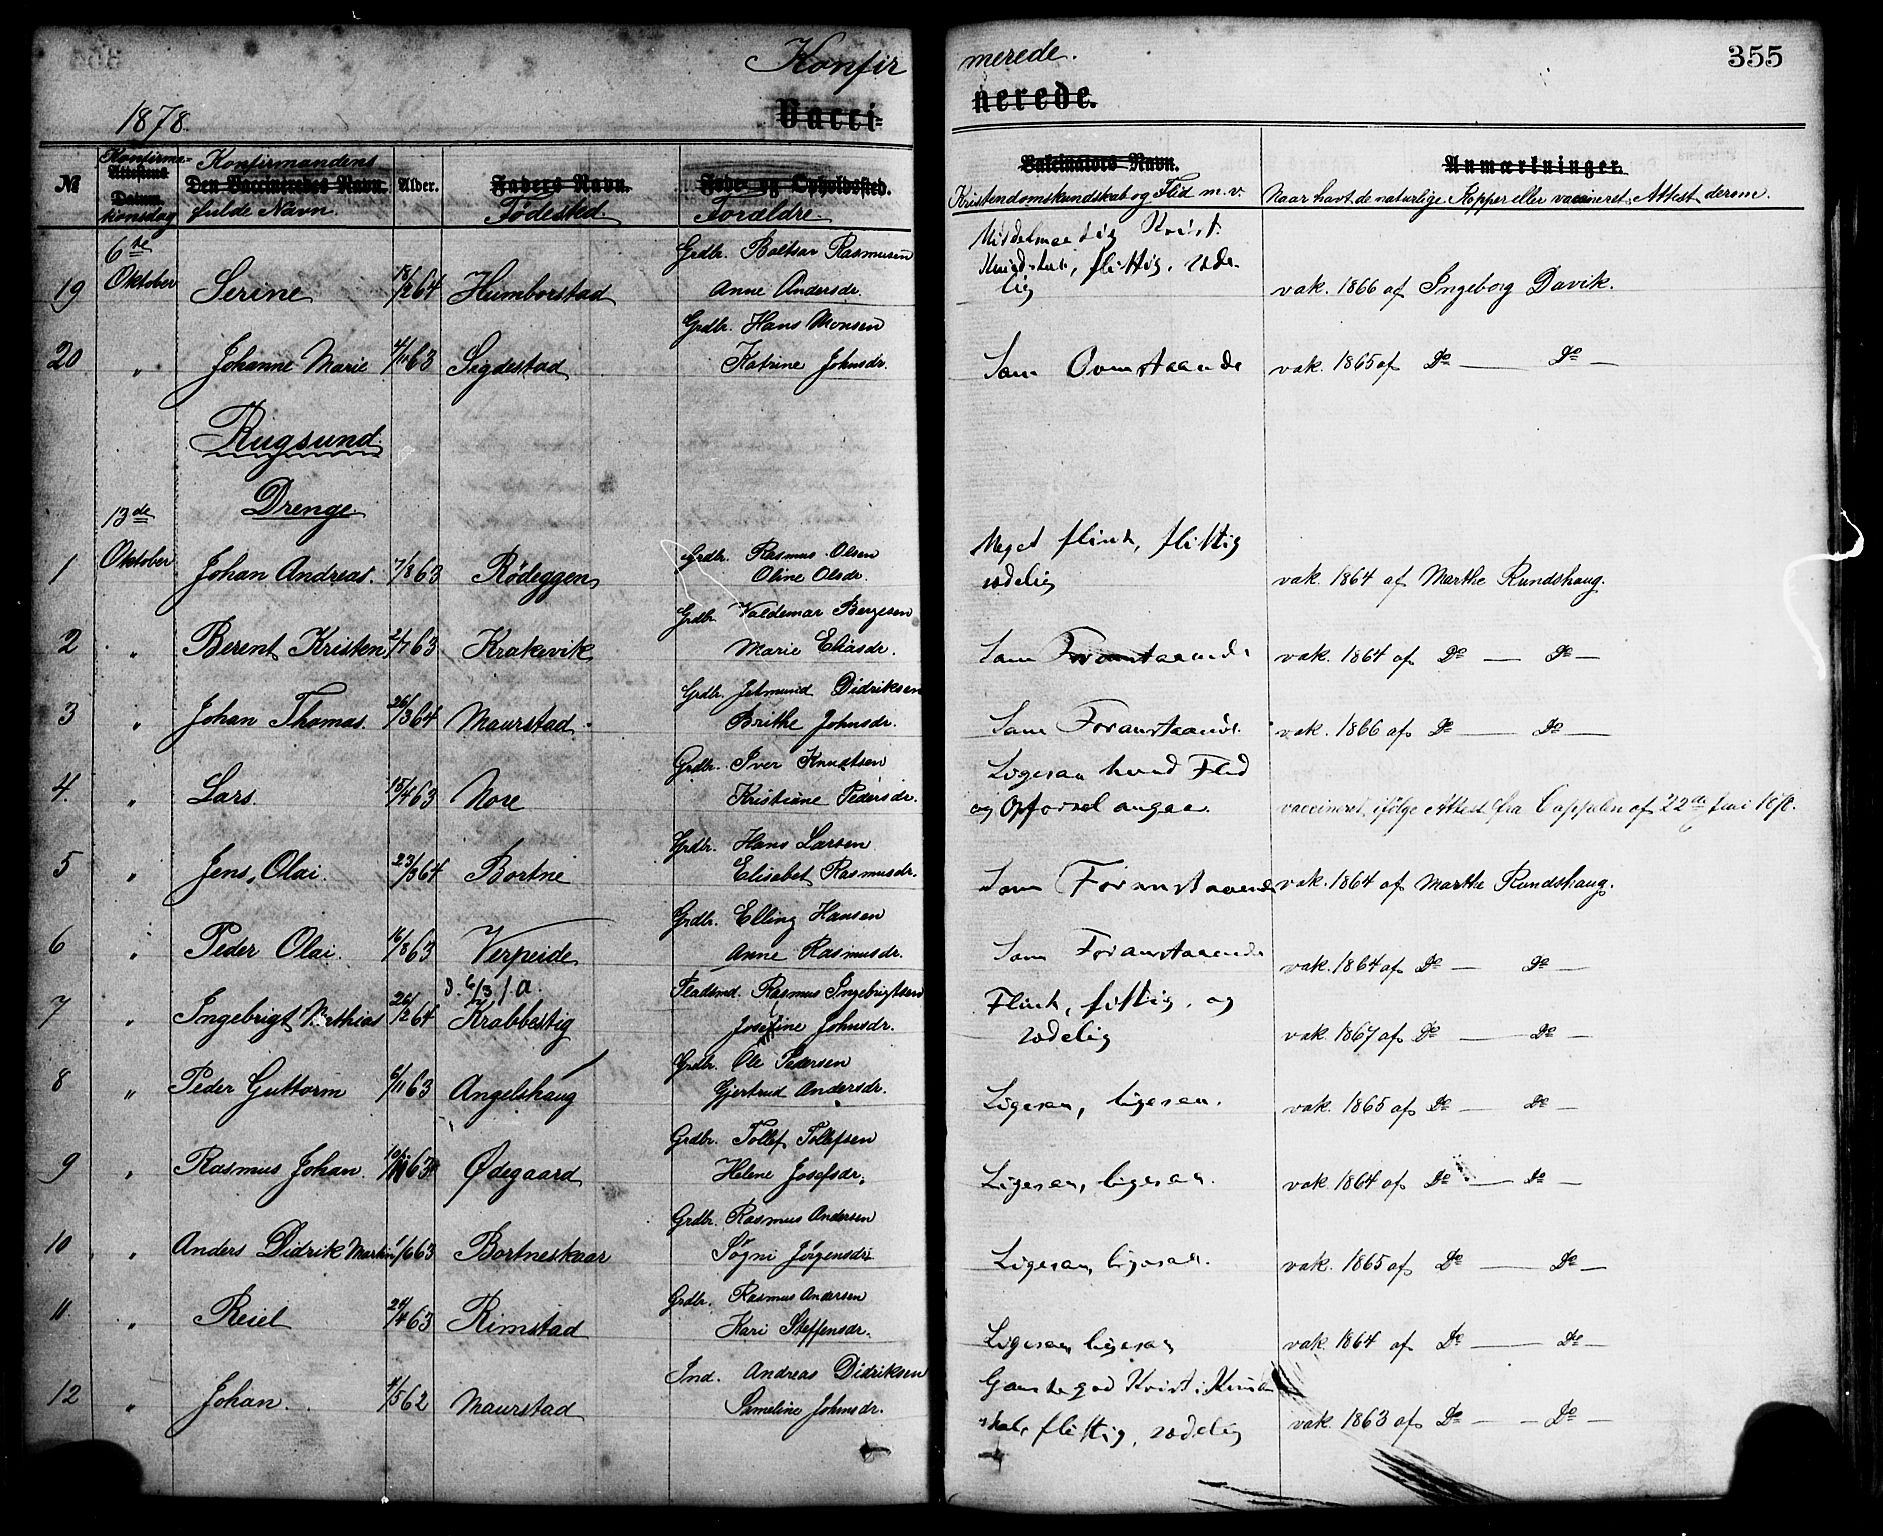 Konfir merede. 355
1878. Vacci- nerede.
№ Konfirma- Attestens Datum. tionsdag Konfirmandens Den Vaccineredes Navn. fulde Navn. Alder. Faders Navn. Fødested. Føde- og Opholdssted. Forældre. Vaccinators Navn. Kristendomskundskab og Flid m. v. Anmærkninger. Naar havt de naturlige Kopper eller vaccineret, Attest derom.
6te Grdbr. Baltsar Rasmusen Middelmaadig Krist.
19 Oktober Serine 18/2 64 Humborstad Anne Andersdr. Kundskab, flittig, sædelig vak. 1866 af Ingeborg Davik.
Grdbr. Hans Monsen
20 " Johanne Marie 4/11 63 Sigdestad Katrine Johnsdr. Som Ovenstaaende vak. 1865 af Do — Do —
Rugsund.
Drenge.
13de
Oktober Grdbr. Rasmus Olsen Meget flink, flittig
1 Johan Andreas. 7/8 63 Rødeggen Oline Olsdr. sædelig vak. 1864 af Marthe Rundshaug.
Grdbr. Valdemar Bergesen
2 " Berent Kristen 2/7 63 Krakevik Marie Eliasdr. Som Foranstaaende vak. 1864 af Do — Do —
Grdbr. Jetmund Didriksen
3 " Johan Thomas. 26/3 64 Maurstad. Brithe Johnsdr. Som Foranstaaende. vak. 1866 af Do — Do —
Grdbr. Iver Knudtsen Ligesaa hvad Flid
4. " Lars. 15/4 63 Nore Kristiane Pedersdr. og Opførsel angaa. vaccineret ifølge Attest fra Cappelen af 22de Juni
Grdbr. Hans Larsen
5 " Jens, Olai. 23/3 64 Bortne Elisabet Rasmusdr. Som Foranstaaende vak. 1864 af Marthe Rundshaug.
Grdbr. Elling Hansen
6 " Peder Olai. 16/8 63 Verpeide Anne Rasmusdr. Som Foranstaaende vak. 1864 af Do — Do —
d. 6/3 f a. Pladsmd. Rasmus Ingebrigtsen Flink, flittig, og
7 " Ingebrigt Mathias 26/2 64 Krabbestig Josefine Johnsdr. sædelig vak. 1867 af Do — Do —
Grdbr. Ole Pedersen
8 " Peder Guttorm 6/11 63 Angelshaug Gjertrud Andersdr. Ligesaa, ligesaa. vak. 1865 af Do — Do —
Grdbr. Tollef Tollefsen
9 " Rasmus Johan. 63 Ødegaard Helene Josefsdr. Ligesaa, ligesaa. vak. 1864 af Do — Do —
Grdbr. Rasmus Andersen
10 " Anders Didrik Martin 1/6 63 Bortneskaar Søgni Jørgensdr. Ligesaa, ligesaa. vak. 1865 af Do — Do —
Grdbr. Rasmus Andersen
11 " Reiel 24/4 63 Rimstad Kari Steffensdr. Ligesaa, ligesaa vak. 1864 af Do — Do —
Ind. Andreas Didriksen Ganske god Kristi Kund
12 " Johan. 4/5 62 Maurstad Sameline Johnsdr. skab, flittig, sædelig vak. 1863 af Do — Do —